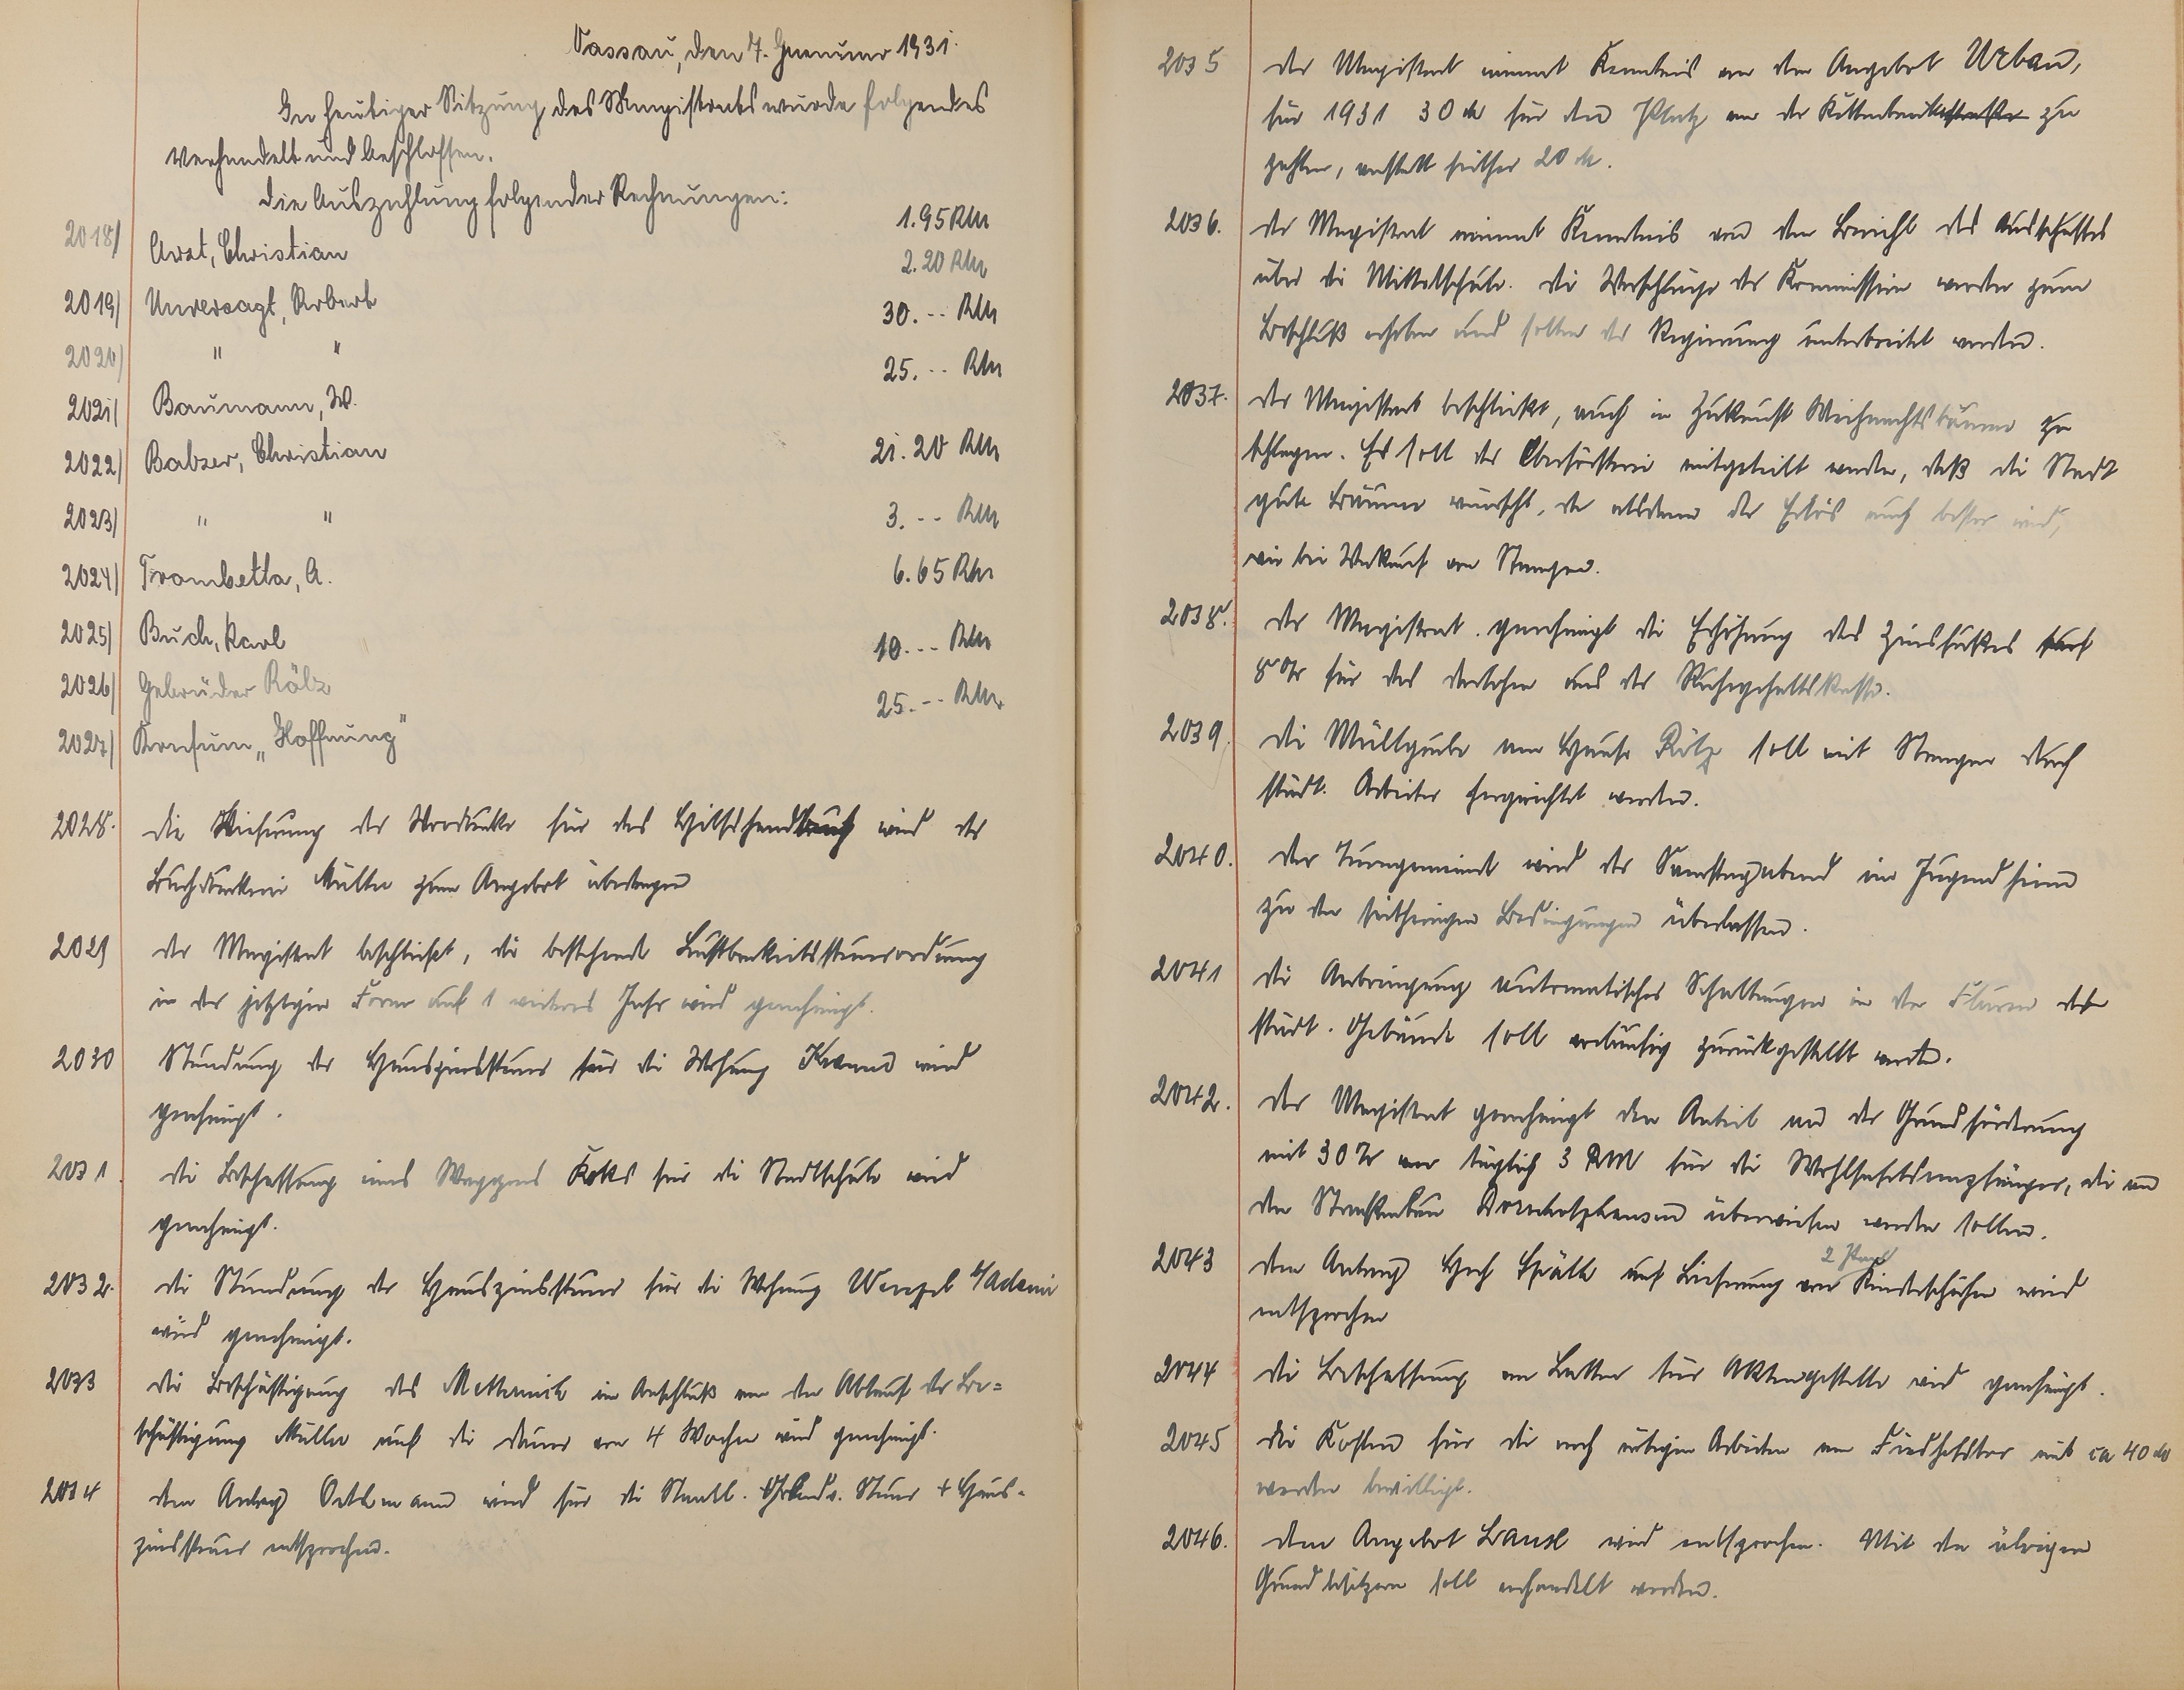 Nassau, den 7. Januar 1931.
In heutiger Sitzung des Magistrats wurde folgendes
verhandelt und beschlossen.
Die Auszahlung folgender Rechnungen:
2018) Arzt, Christian 1.95 RM
2019) Unversagt, Robert 2.20 RM
2020) " " 30.-- RM
2021) Baumann, W. 25.-- RM
2022) Balzer, Christian 21.20 RM
2023) " " 3.-- RM
2024) Trombetta, A. 6.65 RM
2025) Buch, Karl 10.-- RM
2026) Gebrüder Rölz 25.-- RM
2027) Konsum „Hoffnung"
2028. Die Lieferung der Vordrucke für das wird der
Buchdruckerei Müller zum Angebot übertragen
2029 Der Magistrat beschließt, die bestehende Lustbarkeitssteuerordnung
in der jetzigen Form auf 1 weiteres Jahr wird genehmigt.
2030 Stundung der Hauszinssteuer für die Wohnung wird
genehmigt.
2031. Die Beschaffung eines Waggons Koks für die Stadtschule wird
genehmigt.
2032. Die Stundung der Hauszinssteuer für die Wohnung Wenzel
wird genehmigt.
2033 Die Beschäftigung des Metternich im Anschluß an den Ablauf der Be=
schäftigung Müller auf die Dauer von 4 Wochen wird genehmigt.
2034 Dem Antrag wird für die Staatl. Grundv. Steuer + Haus-
zinssteuer entsprochen.
2035 Der Magistrat nimmt Kenntnis von dem Angebot Urban,
für 1931 30 M für den Platz an der zu
zahlen, anstatt seither 20 M.
2036. Der Magistrat nimmt Kenntnis von dem Bericht des Ausschusses
über die Mittelschule. Die Vorschläge der Kommission werden zum
Beschluß erhoben und sollen der Regierung unterbreitet werden.
2037. Der Magistrat beschließt, auch in Zukunft Weihnachtsbäume zu
schlagen. Es soll der Oberförsterei mitgeteilt werden, daß die Stadt
gute Bäume wünscht, da alsdann der Erlös auch besser wird,
wie bei Verkauf von Stangen.
2038. Der Magistrat genehmigt die Erhöhung des Zinsfußes auf
8 % für das Darlehen aus der Ruhegehaltskasse.
2039. Die Müllgrube am Hause Rölz soll mit Stangen durch
städt. Arbeiter hergerichtet werden.
2040. Der Turngemeinde wird der Samstagabend im Jugendheim
zu den seitherigen Bedingungen überlassen.
2041 Die Anbringung automatischer Schaltungen in den Fluren der
städt. Gebäude soll vorläufig zurückgestellt werden.
2042. Der Magistrat genehmigt den Anteil an der Grundförderung
mit 30 % von täglich 3 RM für die Wohlfahrtsempfänger, die an
den Straßenbau Dornholzhausen überwiesen werden sollen.
2043 Dem Antrag Späth auf Lieferung von 2 Paar Kinderschuhen wird
entsprochen
2044 Die Beschaffung von Bretter für Aktengestelle wird genehmigt.
2045 Die Kosten für die noch nötigen Arbeiten am Friedhofstor mit ca 40 M
werden bewilligt.
2046. Dem Angebot wird entsprochen. Mit den übrigen
Grundbesitzern soll verhandelt werden.